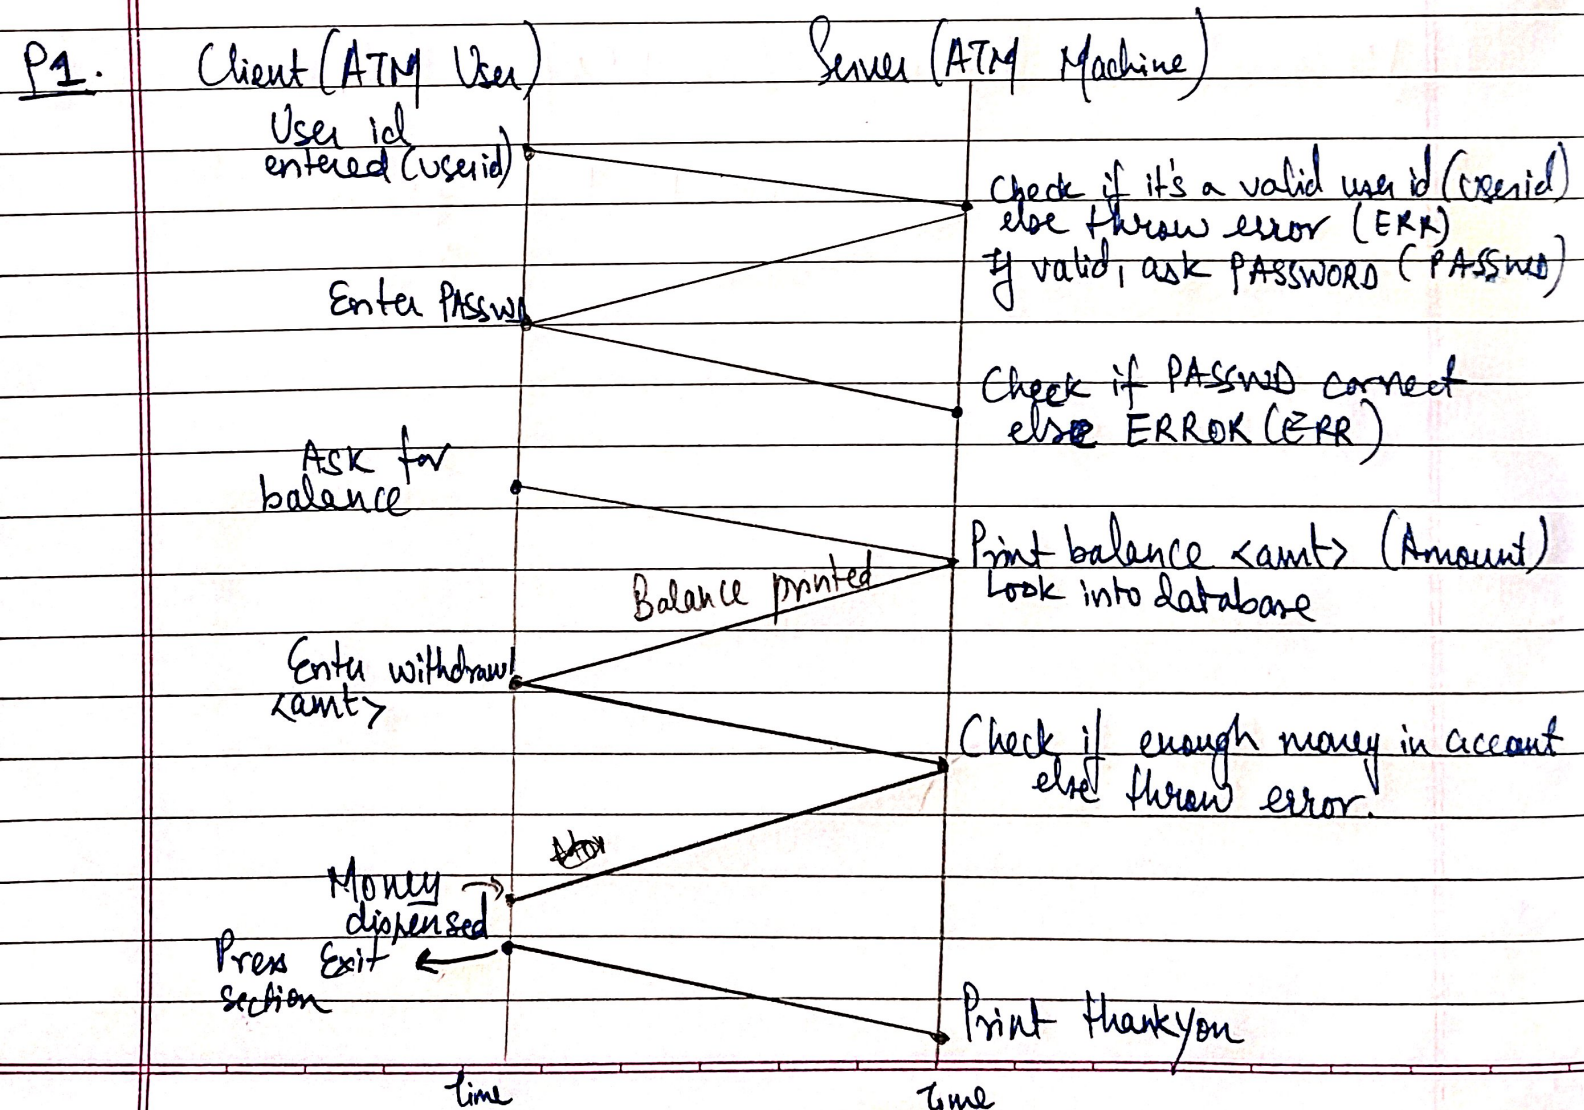 P1. Client (ATM User) Server (ATM Machine)
User id
entered (userid)
Check if it's a valid user id (userid)
else throw error (ERR)
If valid, ask PASSWORD (PASSWD)
Enter PASSWD
Check if PASSWD correct
else ERROR (ERR)
Ask for
balance
Print balance <amt> (Amount)
Look into database
Balance printed
Enter withdrawl
<amt>
Check if enough money in account
else throw error.
Money
dispensed
Press Exit
section
Print thankyou
time time